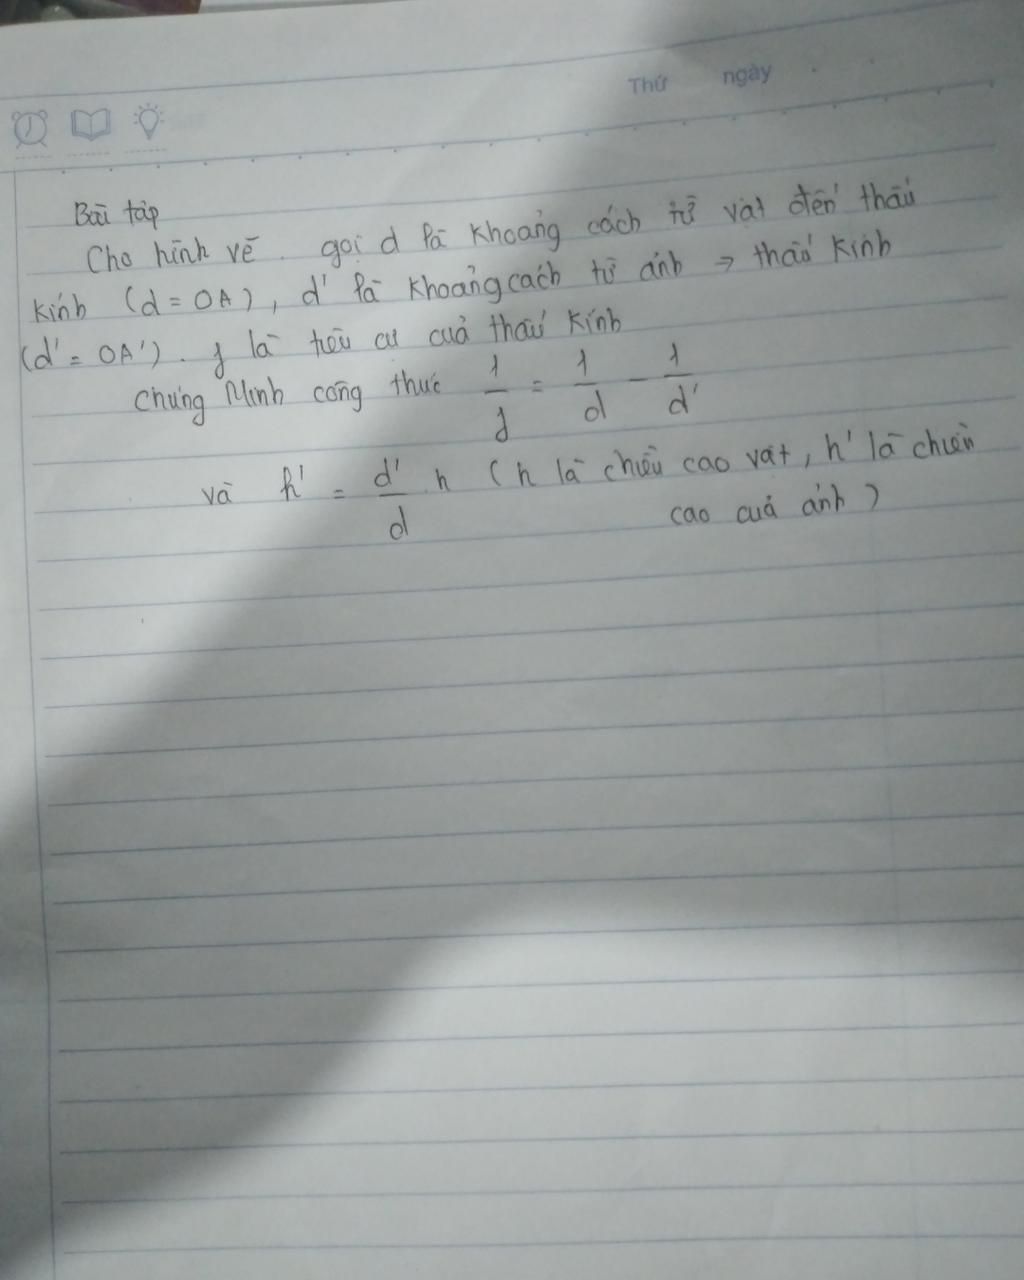 Thứ ngày
Bài tập
Cho hình vẽ. gọi d là khoảng cách từ vật đến thấu
kính (d = OA), d' là khoảng cách từ ảnh → thấu kính
(d' = OA'). f là tiêu cự của thấu kính
Chứng Minh công thức 1/f = 1/d - 1/d'
và h' = d'/d . h (h là chiều cao vật, h' là chiều
cao của ảnh)